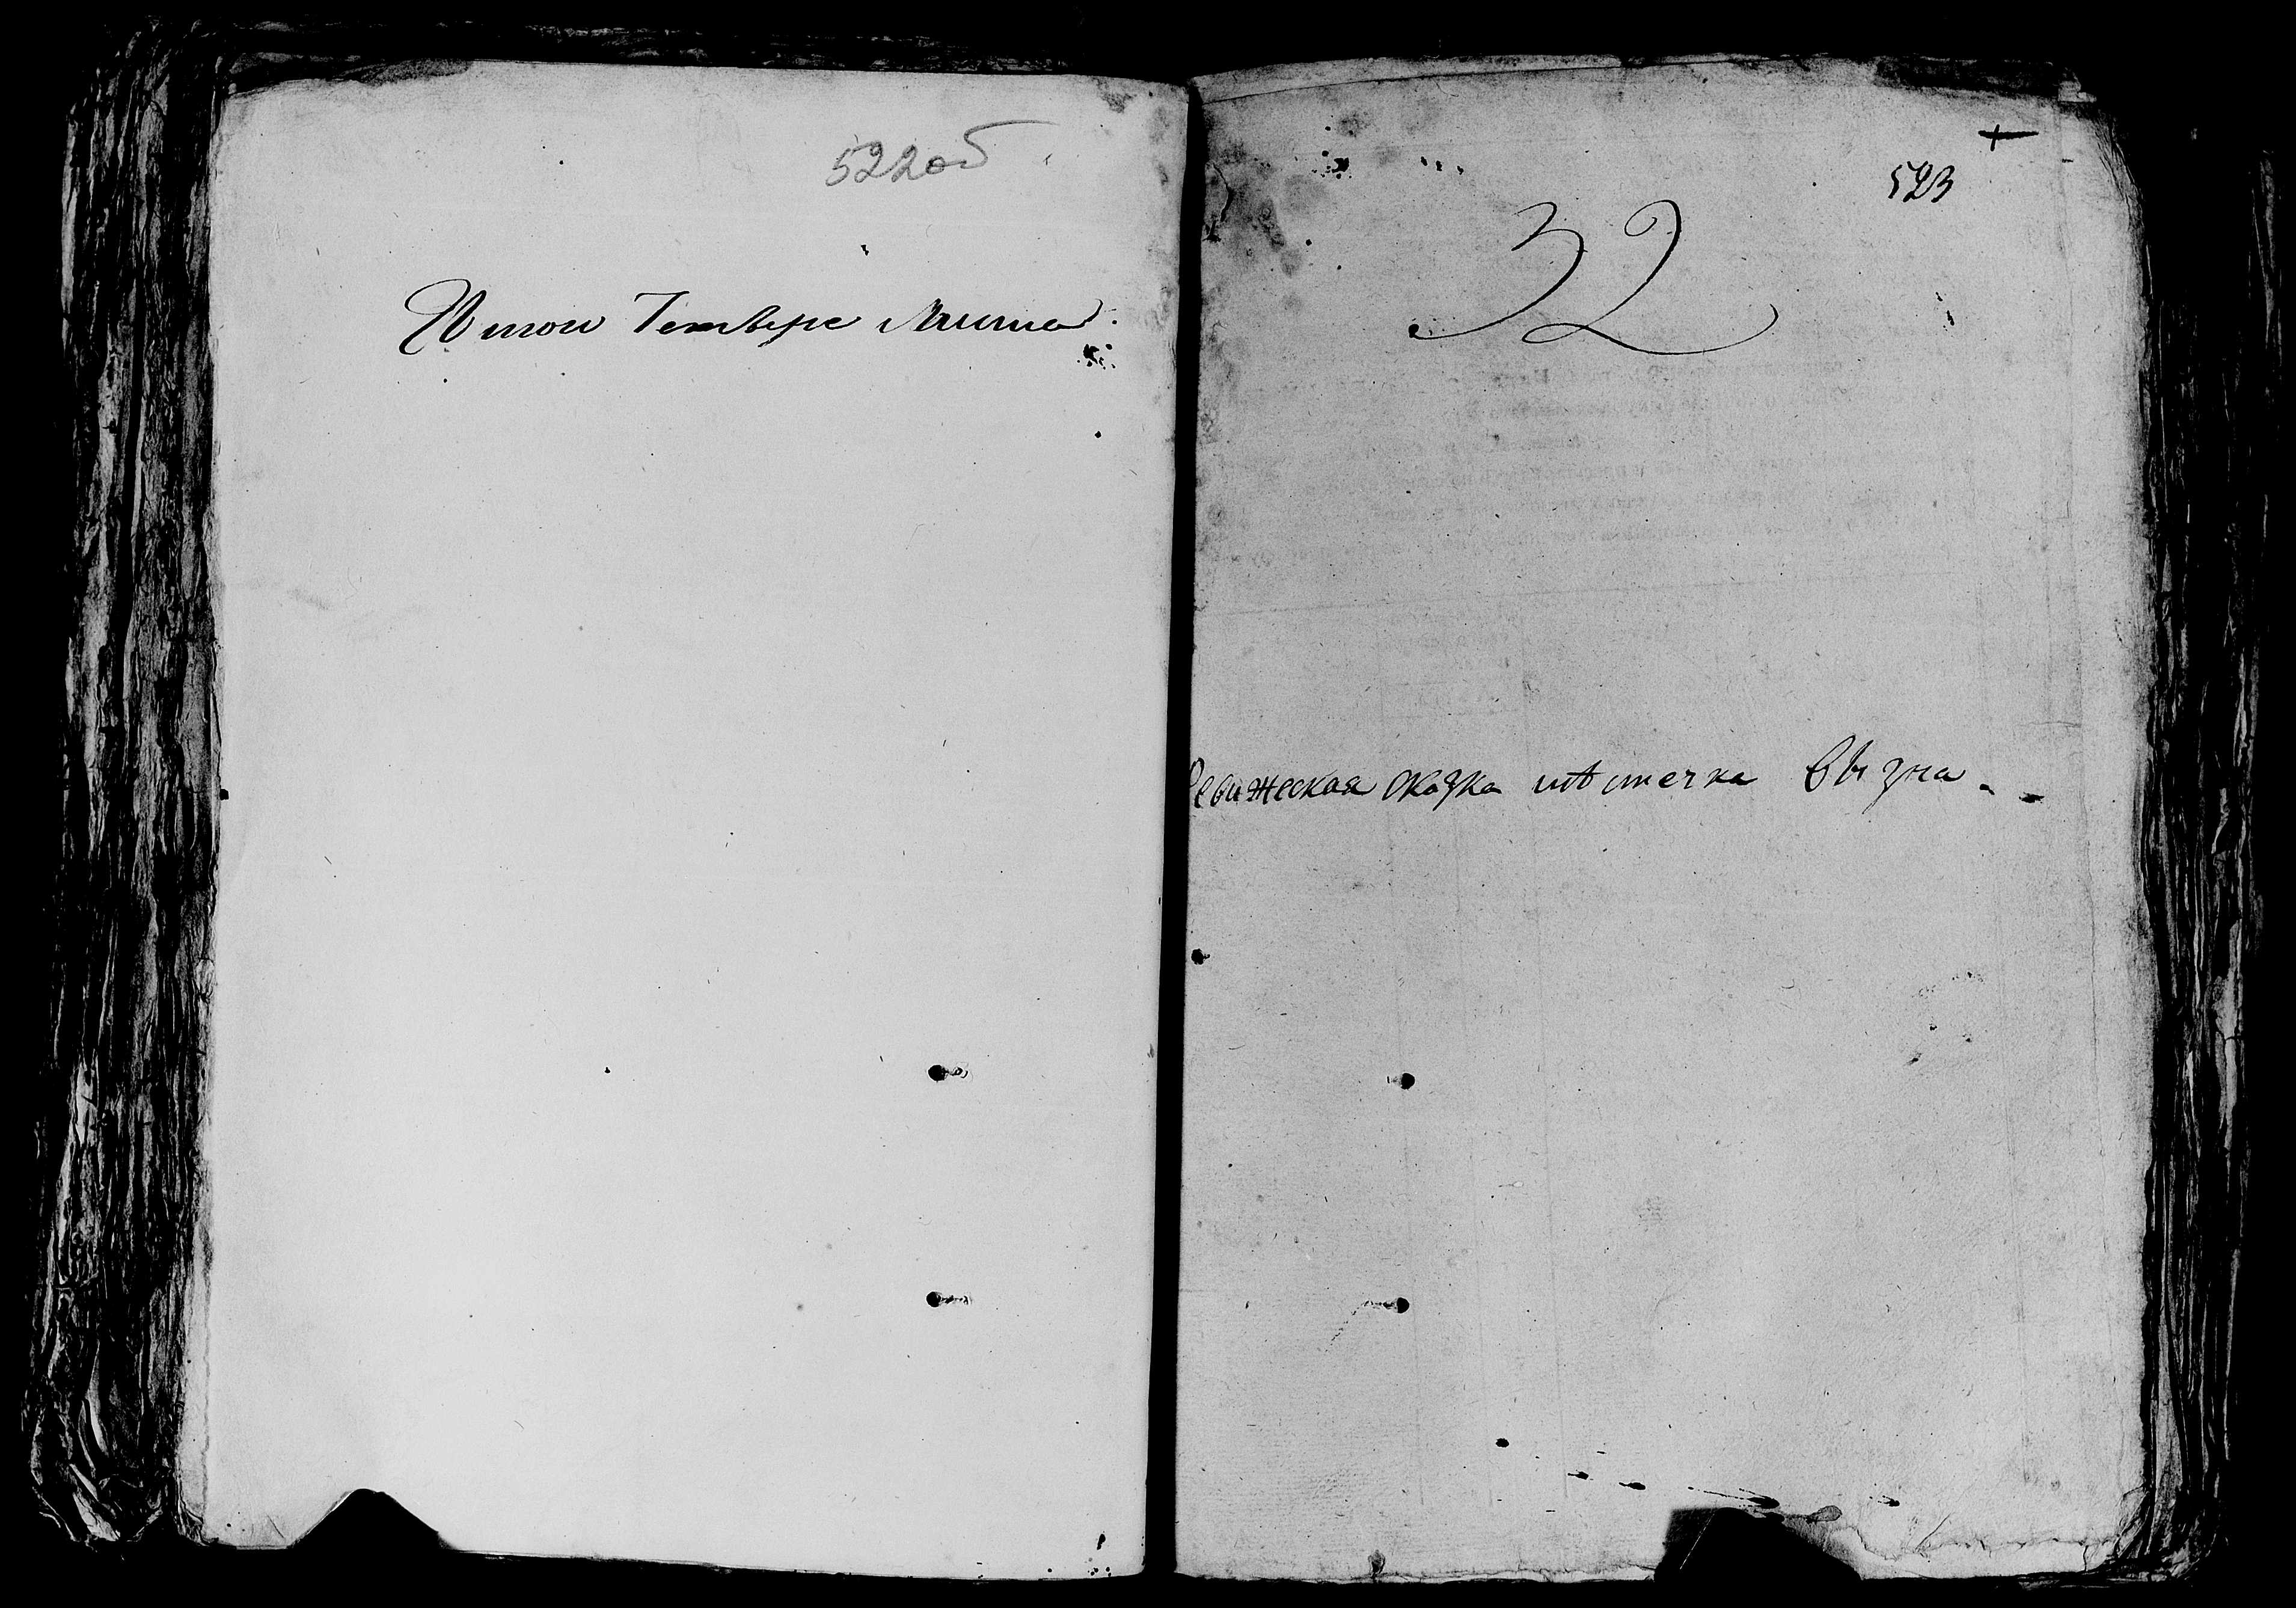 522об
Итого Четвере листа
523
32
Ревижеская скаска мѣстечка Вызна